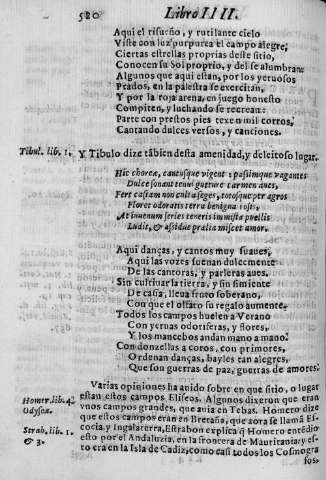 580 Libro IIII.
Aqui el risueño, y rutilante cielo
Viste con luz purpurea el campo alegre,
Ciertas estrellas proprias deste sitio,
Conocen su Sol proprio, y del se alumbran:
Algunos que aqui estan, por los yeruosos
Prados, en la palestra se exercitan,
Y por la roja arena, en juego honesto
Compiten, y luchando se recrean:
Parte con prestos pies texen mil corros,
Cantando dulces versos, y canciones.
Tibul. lib. 1. Y Tibulo dize tãbien desta amenidad, y deleitoso lugar.
Hic choreæ, cantusque vigent: passimque vagantes
Dulce sonant tenui gutture carmen aues,
Fert casiam non culta seges, totosque per agros
Floret odoratis terra benigna rosis,
At iuuenum series teneris immista puellis
Ludit, & assidue prælia miscet amor.
Aqui danças, y cantos muy suaues,
Aqui las vozes suenan dulcemente
De las cantoras, y parleras aues.
Sin cultiuar la tierra, y sin simiente
De casia, lleua fruto soberano,
Con que el olfato su regalo aumente.
Todos los campos huelen a Verano
Con yeruas odoriferas, y flores,
Y los mancebos andan mano a mano:
Con donzellas a coros, con primores,
Ordenan danças, bayles tan alegres,
Que son guerras de paz, guerras de amores.
Varias opiniones ha auido sobre en que sitio, o lugar
estan estos campos Eliseos. Algunos dixeron que eran
Homer. lib. 4. vnos campos grandes, que auia en Tebas. Homero dize
Odyssea. que estos campos eran en Bretaña, que aora se llama Es-
cocia, y Ingalaterra, Estrabon explica q̃ Homero entẽdio
Strab. lib. 1. esto por el Andaluzia, en la frontera de Mauritania; y es-
& 3. to era en la Isla de Cadiz, como casi todos los Cosmogra
fos,